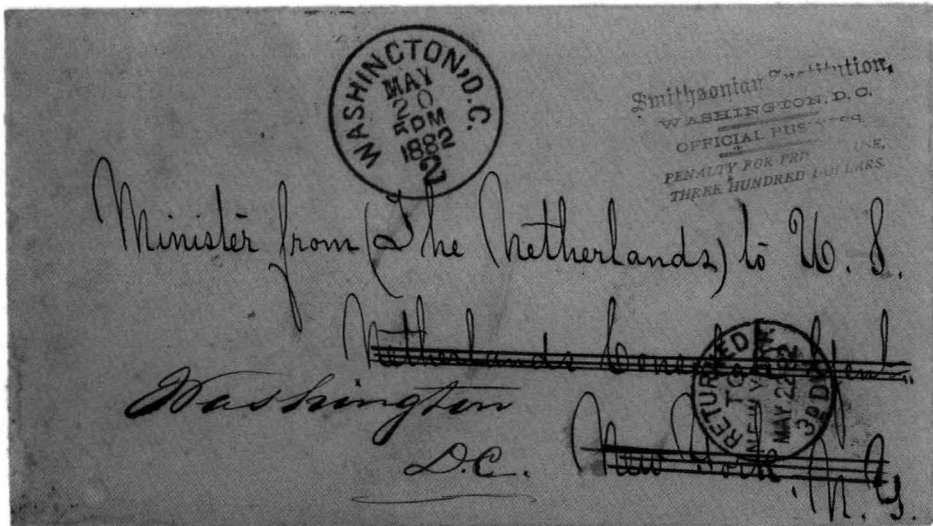 WASHINGTON, D.C.
MAY
20
5PM
1882
2
Smithsonian Institution,
WASHINGTON, D.C.
OFFICIAL
PENALTY FOR
THREE HUNDRED DOLLARS.
Minister from (The Netherlands) to U. S.
Netherlands Consul
Washington
D.C.
New York, N. Y.
RETURNED
TO
NEW YORK.
MAY 22 82
3D